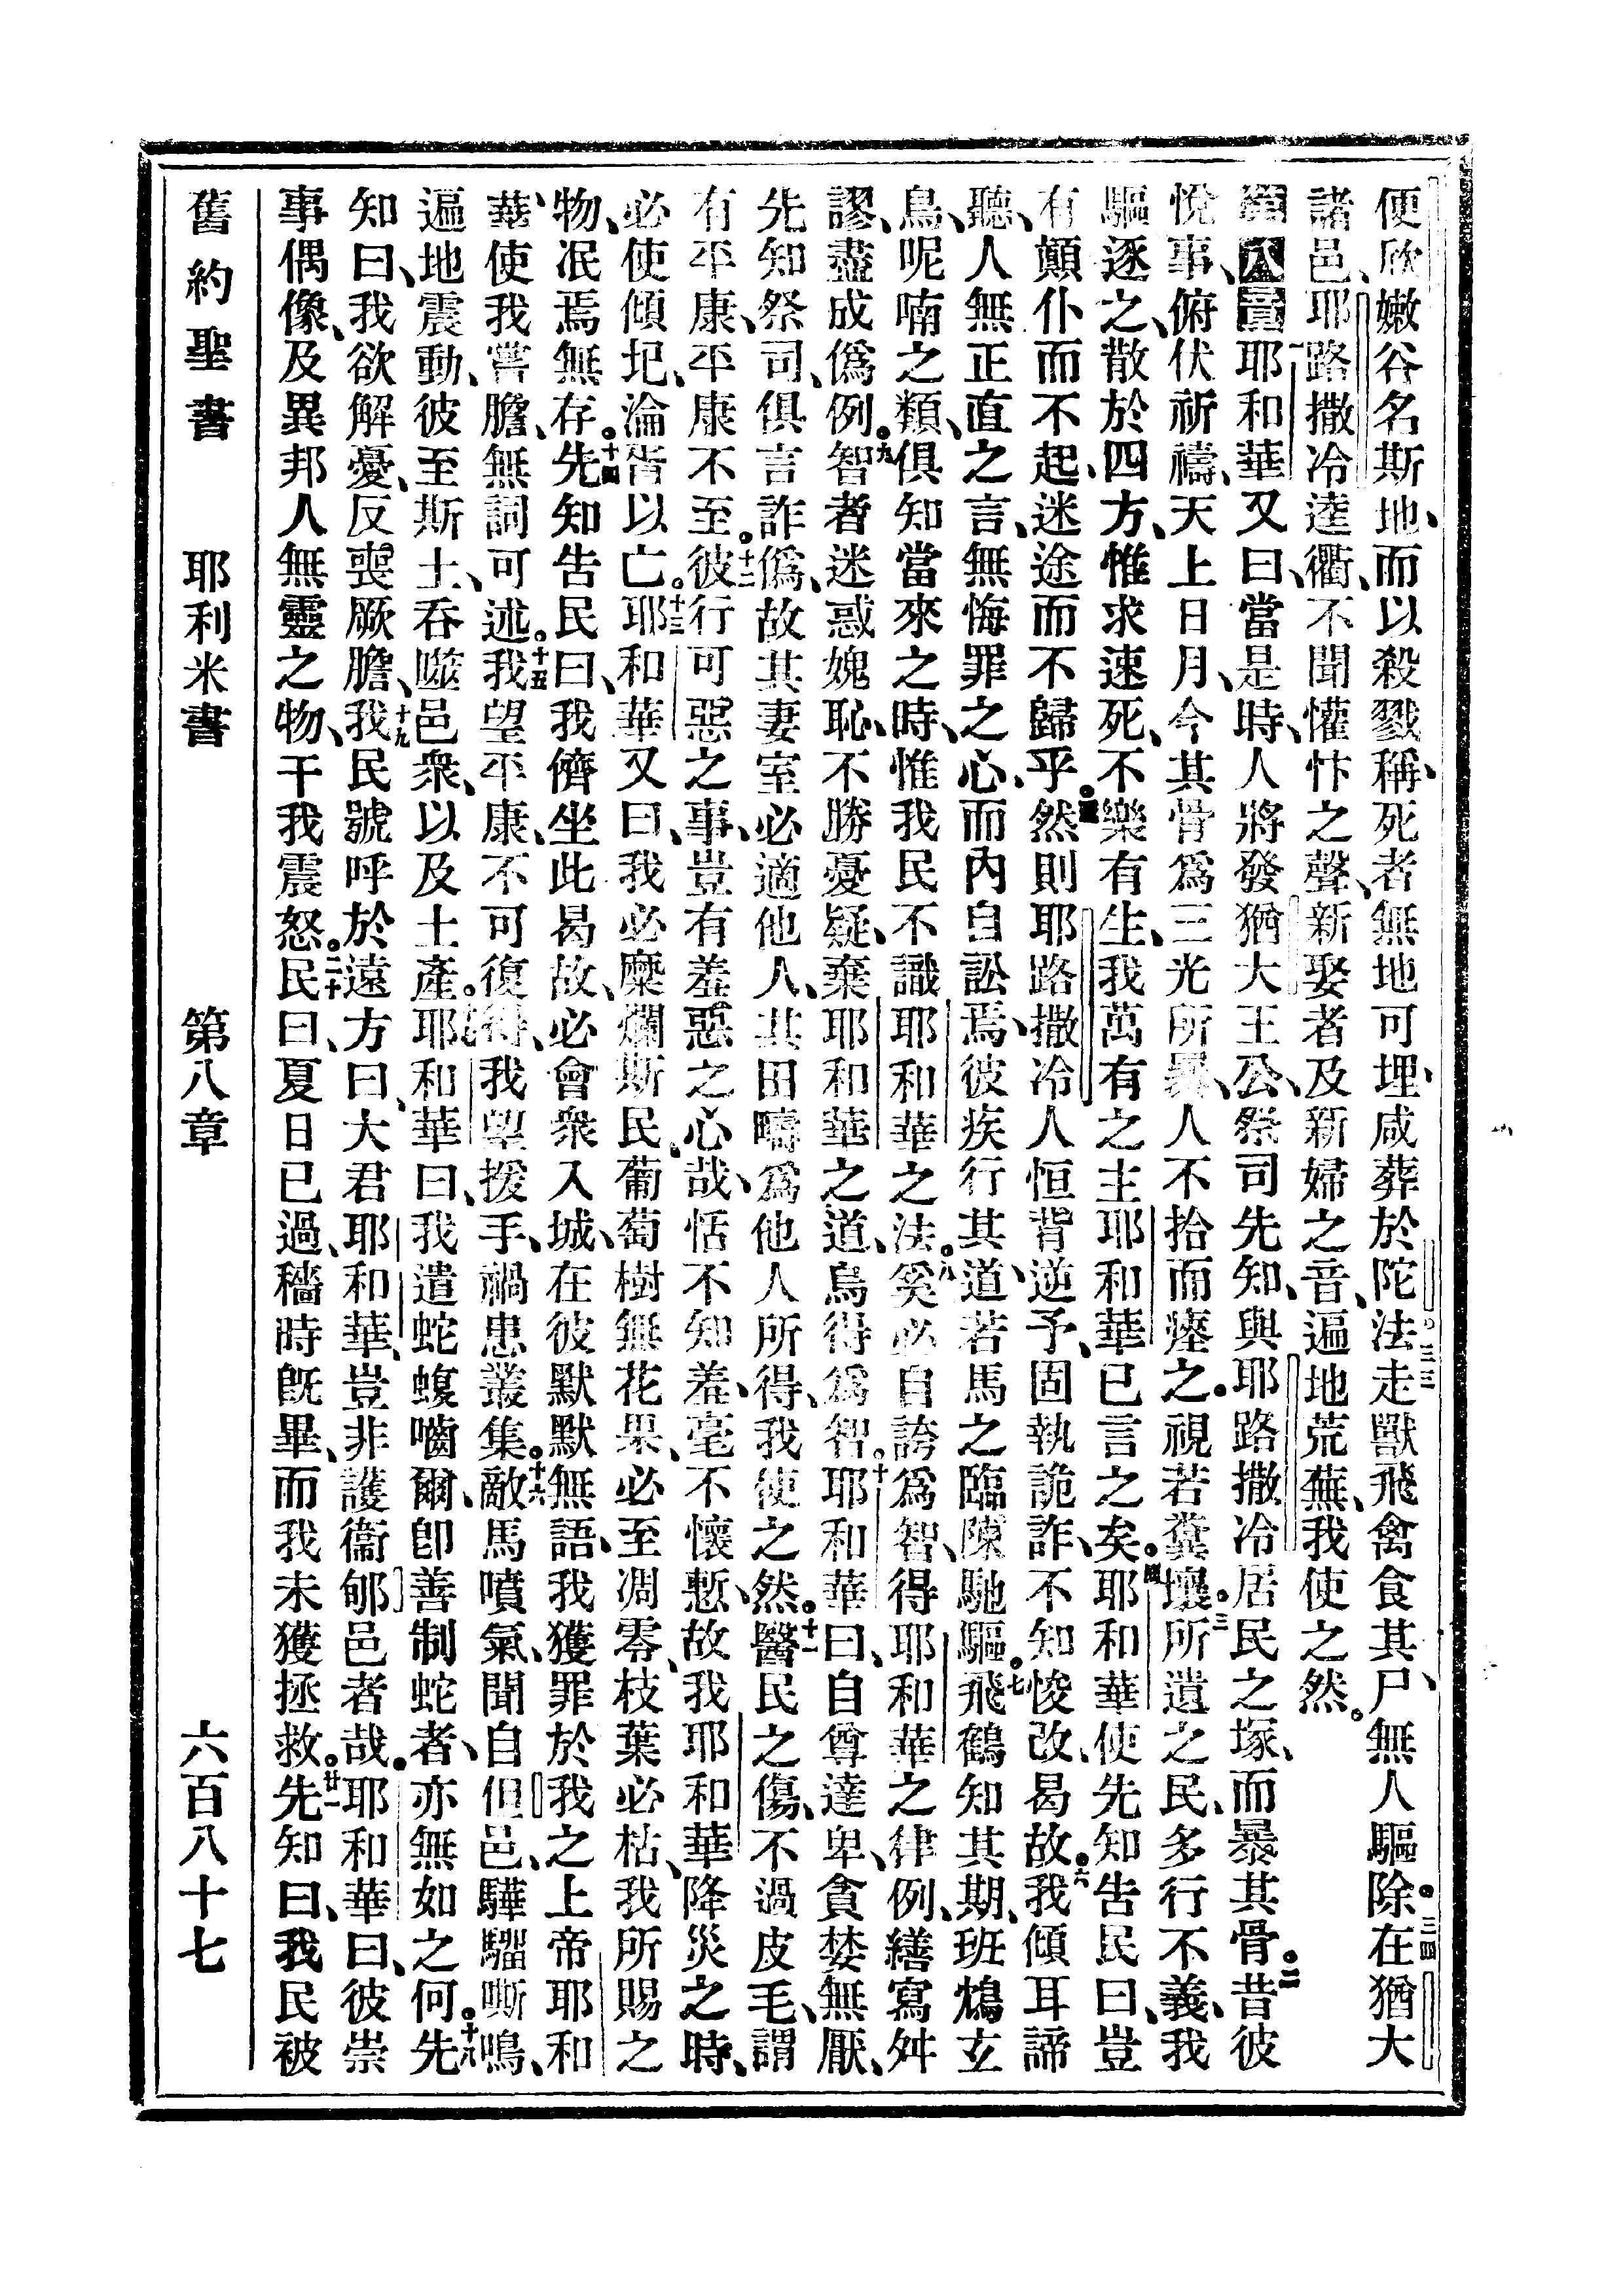 便欣嫩谷名斯地、而以殺戮稱、死者無地可埋、咸葬於陀法。三三走獸飛禽食其尸、無人驅除。三四在猶大
諸邑、耶路撒冷逵衢、不聞懽忭之聲、新娶者及新婦之音、遍地荒蕪、我使之然。
第八章耶和華又曰、當是時、人將發猶大王公、祭司先知、與耶路撒冷居民之塚、而暴其骨。二昔彼
悅事、俯伏祈禱、天上日月、今其骨爲三光所暴、人不拾而瘞之。視若糞壤。三所遺之民、多行不義、我
驅逐之、散於四方、惟求速死、不樂有生、我萬有之主耶和華已言之矣。四耶和華使先知告民曰、豈
有顛仆而不起、迷途而不歸乎。五然則耶路撒冷人恒背逆予、固執詭詐、不知悛改、曷故。六我傾耳諦
聽、人無正直之言、無悔罪之心、而內自訟焉、彼疾行其道、若馬之臨陳馳驅。七飛鶴知其期、班鳩玄
鳥、呢喃之類、俱知當來之時、惟我民不識耶和華之法。八奚必自誇爲智、得耶和華之律例、繕寫舛
謬、盡成僞例。九智者迷惑媿恥、不勝憂疑、棄耶和華之道、烏得爲智。十耶和華曰、自尊達卑、貪婪無厭、
先知祭司、俱言詐僞、故其妻室必適他人、其田疇爲他人所得、我使之然。十一醫民之傷、不過皮毛、謂
有平康、平康不至。十二彼行可惡之事、豈有羞惡之心哉、恬不知羞、毫不懷慙、故我耶和華降災之時、
必使傾圯、淪胥以亡。十三耶和華又曰、我必糜爛斯民、葡萄樹無花果、必至凋零、枝葉必枯、我所賜之
物、泯焉無存。十四先知告民曰、我儕坐此曷故、必會衆入城、在彼默默無語、我獲罪於我之上帝耶和
華、使我嘗膽、無詞可述。十五我望平康、不可復得、我望援手、禍患叢集。十六敵馬噴氣、聞自但邑、驊騮嘶鳴、
遍地震動、彼至斯土、吞噬邑衆、以及土產。十七耶和華曰、我遣蛇蝮嚙爾、卽善制蛇者、亦無如之何。十八先
知曰、我欲解憂、反喪厥膽、十九我民號呼於遠方曰、大君耶和華、豈非護衞郇邑者哉。耶和華曰、彼崇
事偶像、及異邦人無靈之物、干我震怒。二十民曰、夏日已過、穡時旣畢、而我未獲拯救。廿一先知曰、我民被
舊約聖書 耶利米書 第八章 六百八十七